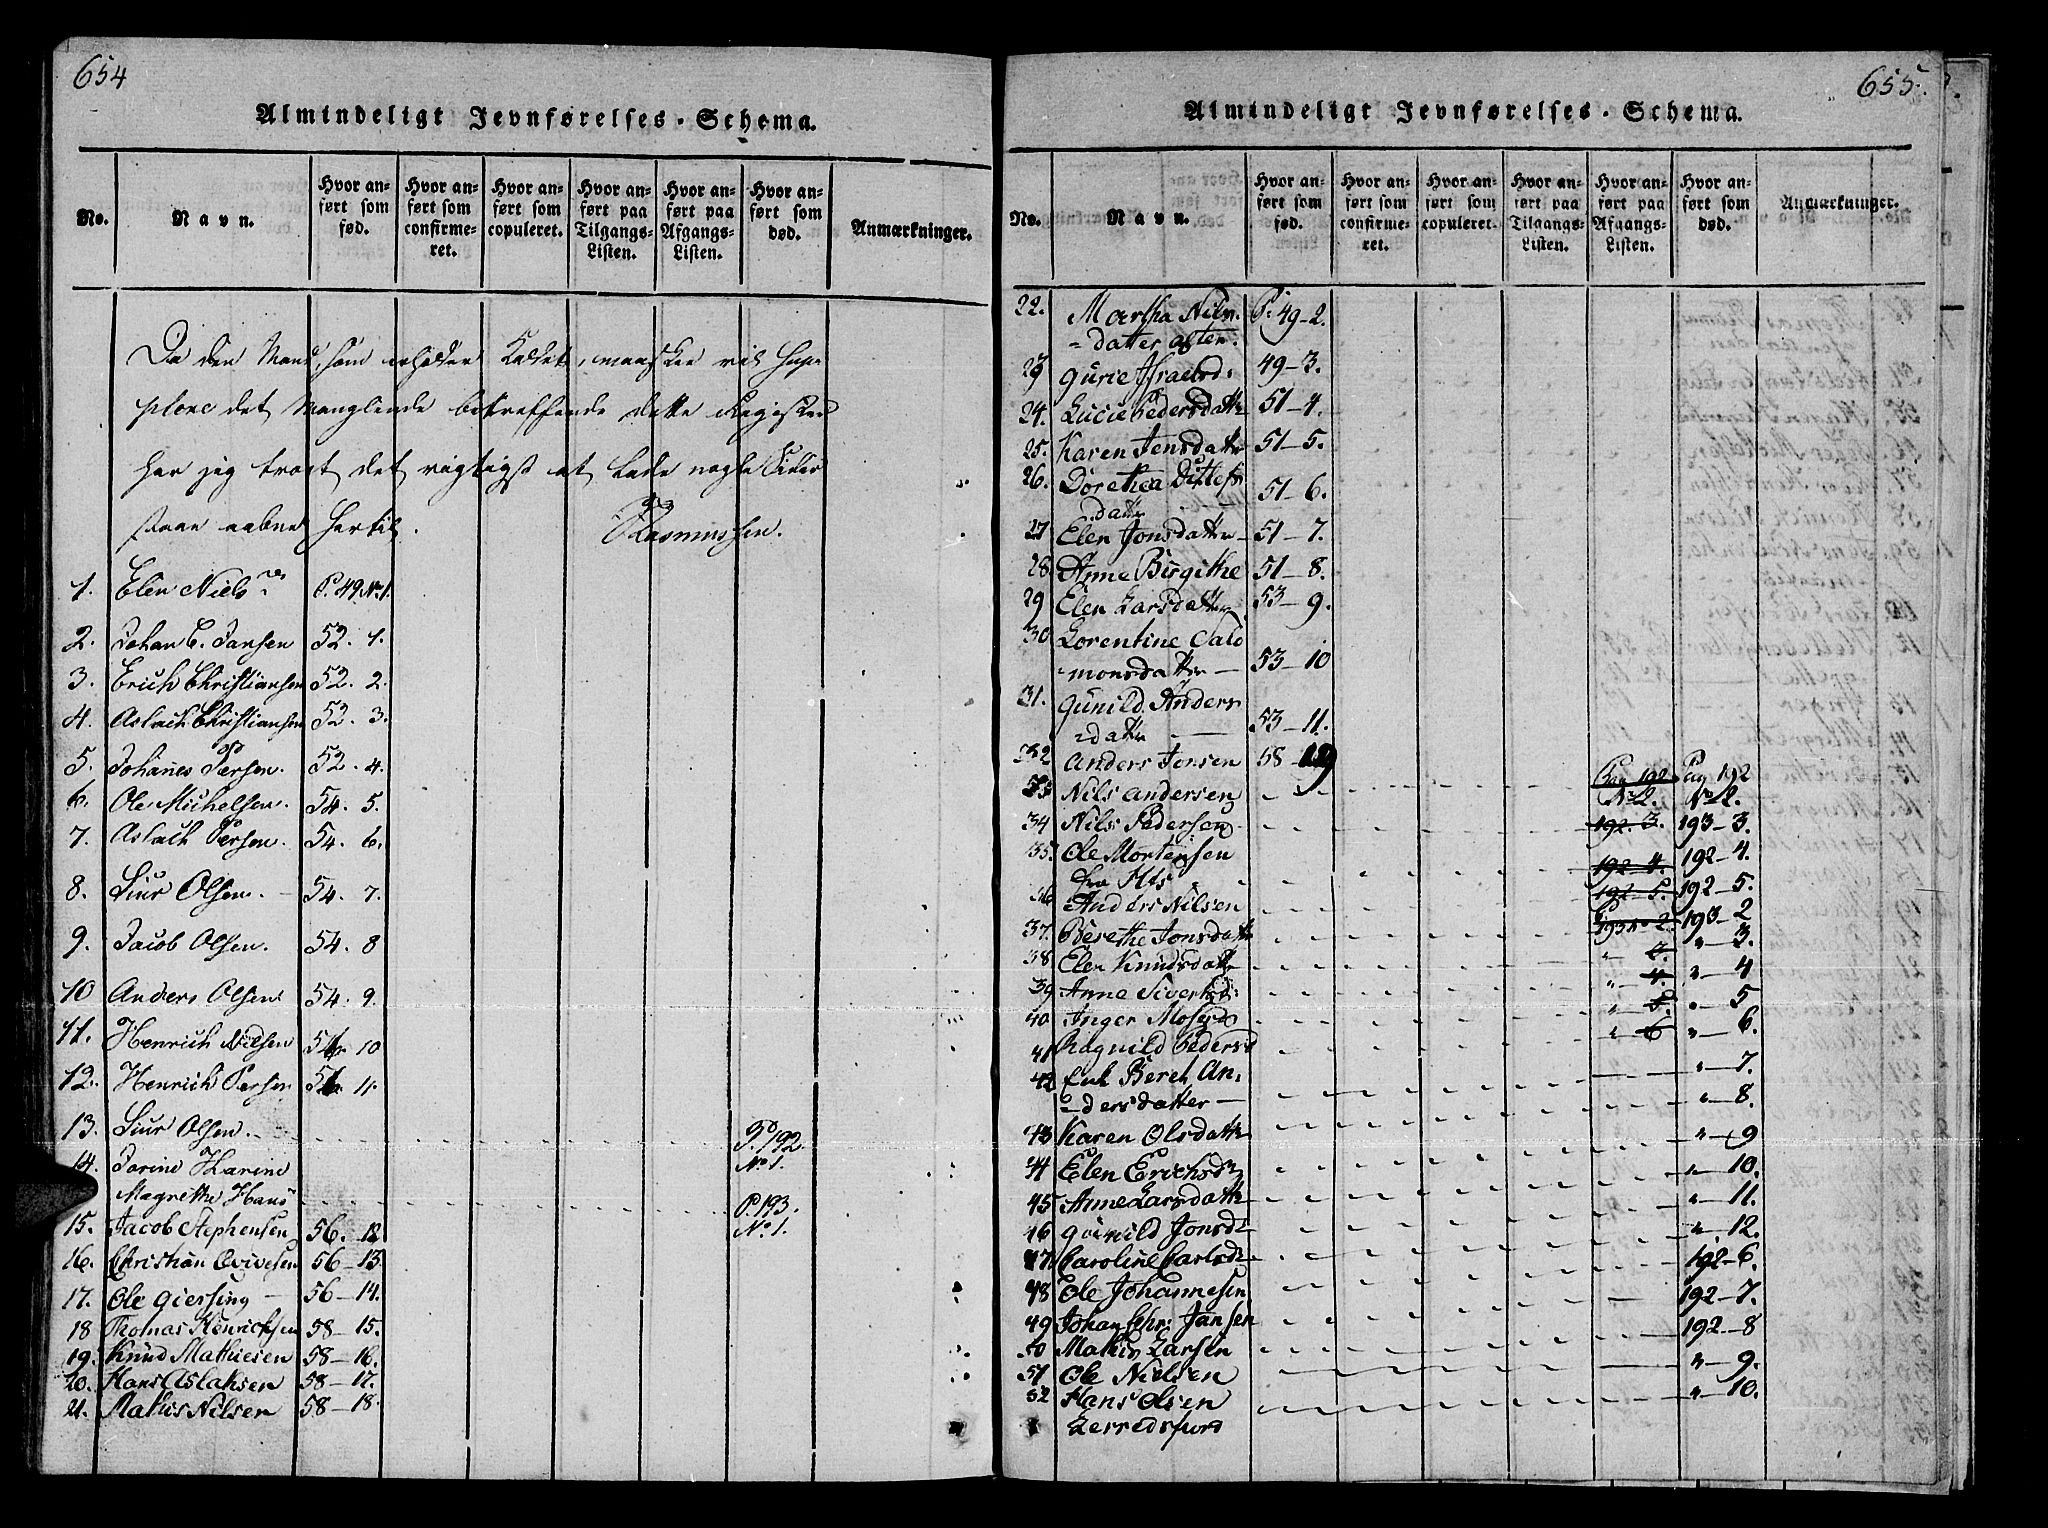 654
Almindeligt Jevnførelses-Schema.
No. Navn. Hvor anført som fød. Hvor anført som confirmeret. Hvor anført som copuleret. Hvor anført paa Tilgangs-Listen. Hvor anført paa Afgangs-Listen. Hvor anført som død. Anmærkninger.
Da den Mand, som erholder Kaldet, maaskee vil sup-
plere det Manglende betreffende dette Register
har jeg troet det rigtigst at lade nogle Sider
staae aabne hertil.
Rasmussen.
1. Elen Niels P. 49 No 1.
2. Johan C. Jansen 52. 1.
3. Erich Christiansen 52. 2.
4. Aslach Christiansen 52. 3.
5. Johanes Persen. 52. 4.
6. Ole Michelsen. 54. 5.
7. Aslach Persen. 54. 6.
8. Siur Olsen. 54. 7.
9. Jacob Olsen. 54. 8
10 Anders Olsen 54. 9.
11. Henrich Nilsen 54. 10
12. Henrich Persen 11.
13. Siur Olsen. P. 192.
No. 1.
14. Jorine Karine
Magrethe Hans P. 193.
No. 1.
15. Jacob Stephensen 56. 12
16. Christian 56-13.
17. Ole Giersing 56-14.
18 Thomas Henrichsen 58-15.
19. Knud Mathiesen 58-16.
20. Hans Aslaksen 58-17.
21. Mathis Nilsen 58-18.
655.
Almindeligt Jevnførelses-Schema.
No. Navn. Hvor anført som fød. Hvor anført som confirmeret. Hvor anført som copuleret. Hvor anført paa Tilgangs-Listen. Hvor anført paa Afgangs-Listen. Hvor anført som død. Anmærkninger.
22. Martha Nils- P: 49-2.
-datter
23 Gurie Israelsd. 49-3.
24. Lucie Pedersdattr 51-4.
25. Karen Jensdattr 51-5.
26. Dorethea Ditlefs
dattr 51-6.
27 Elen Jonsdattr 51-7.
28 Anne Birgithe 51-8.
29 Elen Larsdattr 53-9.
30 Lorentine Salo
monsdattr 53-10
31. Gunild Anders
-dattr 53-11.
32 Anders Jonsen 58-
33 Nils Andersen Pag 192 No 2. Pag 192 No 2.
34 Nils Pedersen 192-3. 193-3.
35. Ole Mortensen
fra 192-4. 192-4.
36 Anders Nilsen 192-5. 192-5.
37. Berethe Jonsdattr 193 2. 193-2
38 Elen Knudsdattr " " - 3.
39 Anne Siverts " - 4. " - 4
40 Inger Mosesd " - 5 " - 5
41 Ragnild Pedersd " - 6 " - 6.
42 Beret An-
-dersdatter " - 7.
43 Karen Olsdattr " - 8.
44 Elen Erichsd " - 9
45 Anne Larsdattr " - 10.
46 Gunild Jonsd " - 11.
47 Caroline Carlsd " - 12.
48 Ole Johannesen 192-6.
49 Johan Chr: Jansen 192-7.
50 Mathis Larsen 192-8
51 Ole Nielsen " - 9.
52 Hans Olsen
Lerredsfiord " - 10.